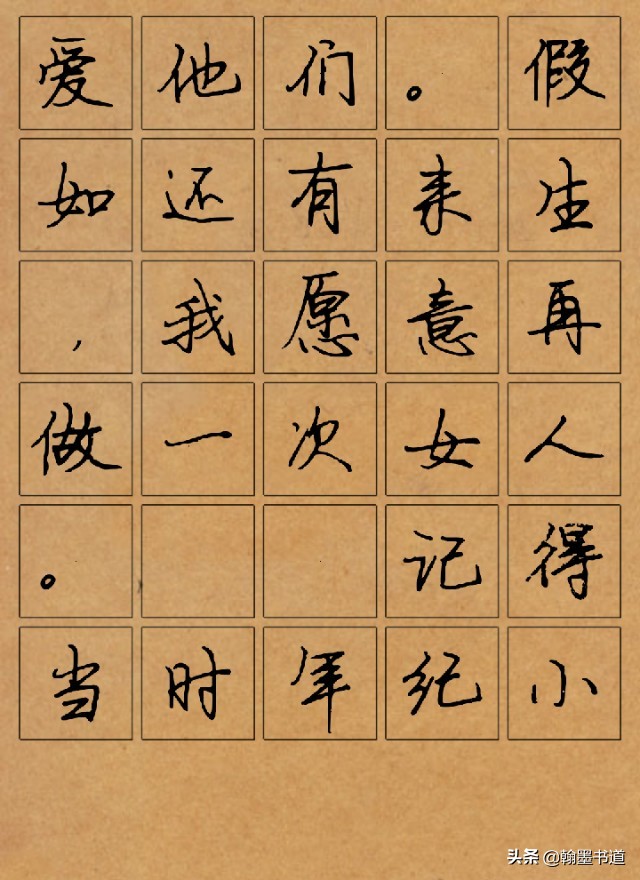 爱他们。假
如还有来生
，我愿意再
做一次女人
。记得
当时年纪小
头条 @翰墨书道